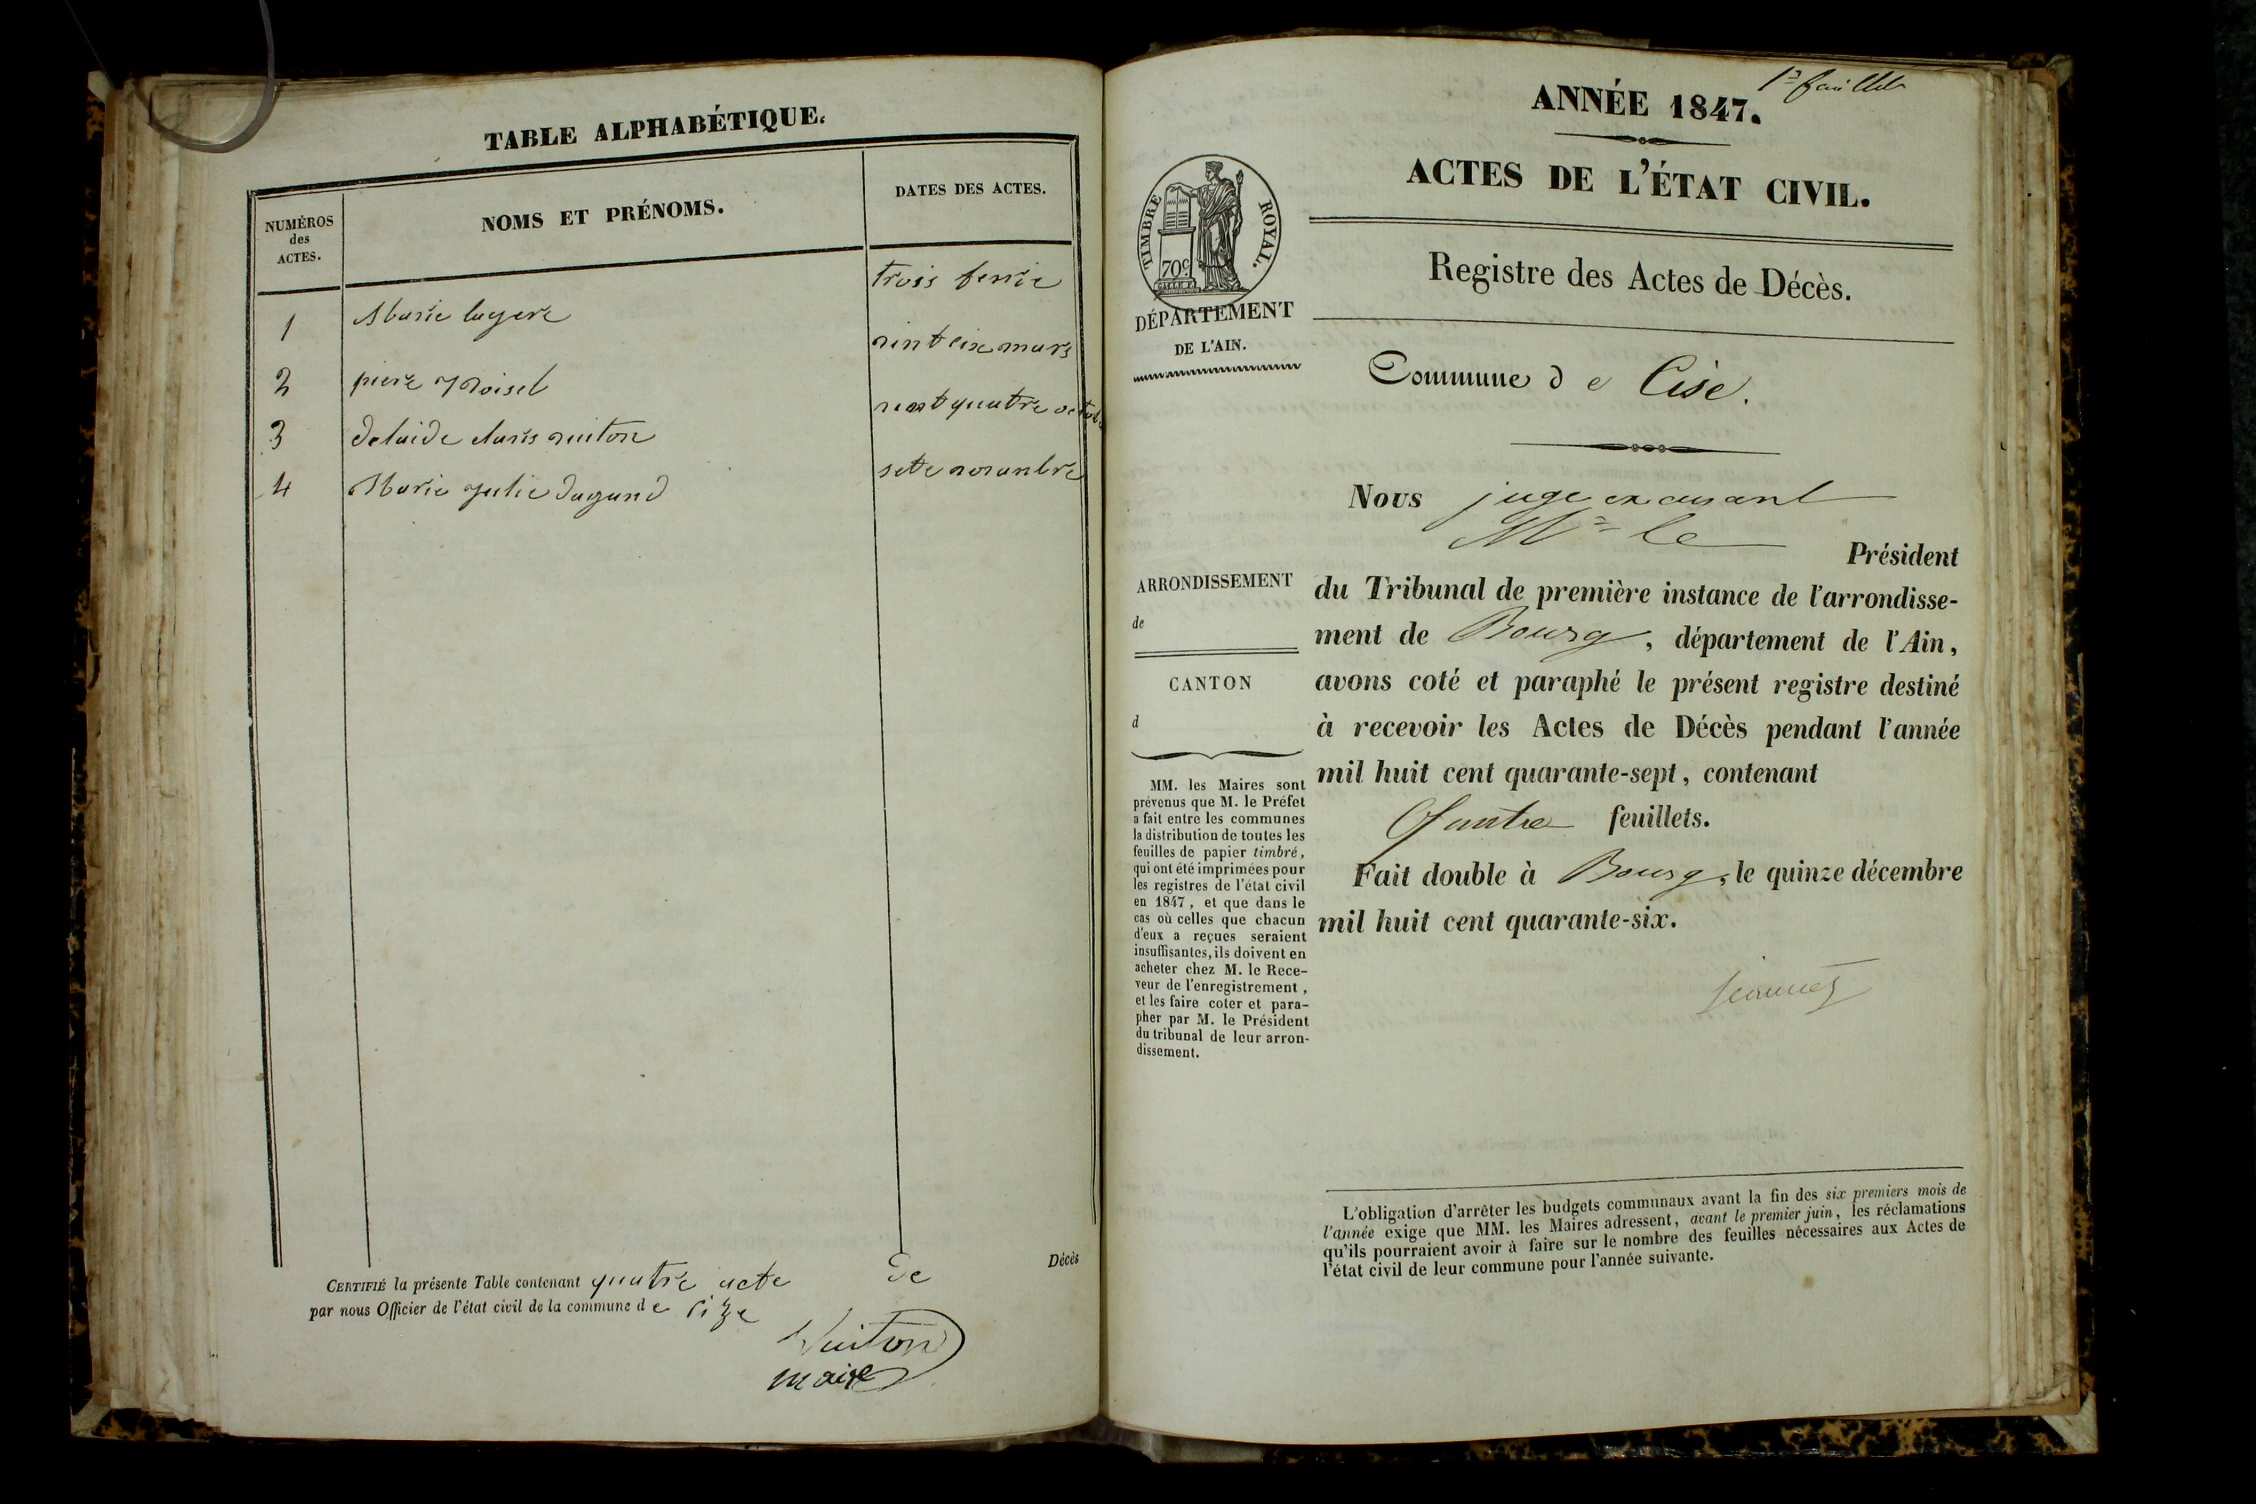 TABLE ALPHABÉTIQUE.
NUMÉROS
des
ACTES.
NOMS ET PRÉNOMS.
DATES DES ACTES.
1 Marie lugere trois fevrie
2 piere Moisel vint six mars
3 delaide claris vuiton vint quatre octobre
4 Marie julie dugand sete novanbre
CERTIFIÉ la présente Table contenant quatre acte de Décès
par nous Officier de l'état civil de la commune de cize
Vuiton
maire
1er feuillet
ANNÉE 1847.
ACTES DE L'ÉTAT CIVIL.
TIMBRE ROYAL.
70c
Registre des Actes de Décès.
DÉPARTEMENT
DE L'AIN.
Commune de Cise.
Nous juge en
Mr le
Président
du Tribunal de première instance de l'arrondisse-
ment de Bourg, département de l'Ain,
avons coté et paraphé le présent registre destiné
à recevoir les Actes de Décès pendant l'année
mil huit cent quarante-sept, contenant
Quatre feuillets.
Fait double à Bourg, le quinze décembre
mil huit cent quarante-six.
ARRONDISSEMENT
de
CANTON
d
MM. les Maires sont
prévenus que M. le Préfet
a fait entre les communes
la distribution de toutes les
feuilles de papier timbré,
qui ont été imprimées pour
les registres de l'état civil
en 1847, et que dans le
cas où celles que chacun
d'eux a reçues seraient
insuffisantes, ils doivent en
acheter chez M. le Rece-
veur de l'enregistrement,
et les faire coter et para-
pher par M. le Président
du tribunal de leur arron-
dissement.
L'obligation d'arrêter les budgets communaux avant la fin des six premiers mois de
l'année exige que MM. les Maires adressent, avant le premier juin, les réclamations
qu'ils pourraient avoir à faire sur le nombre des feuilles nécessaires aux Actes de
l'état civil de leur commune pour l'année suivante.